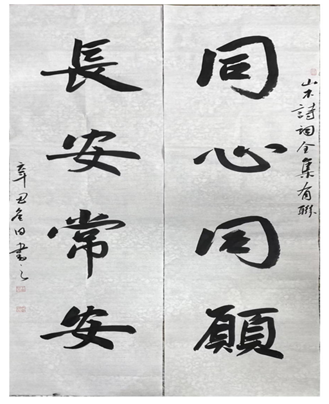 山木詩詞全集有聯
同心同願
長安常安
辛丑 田書之